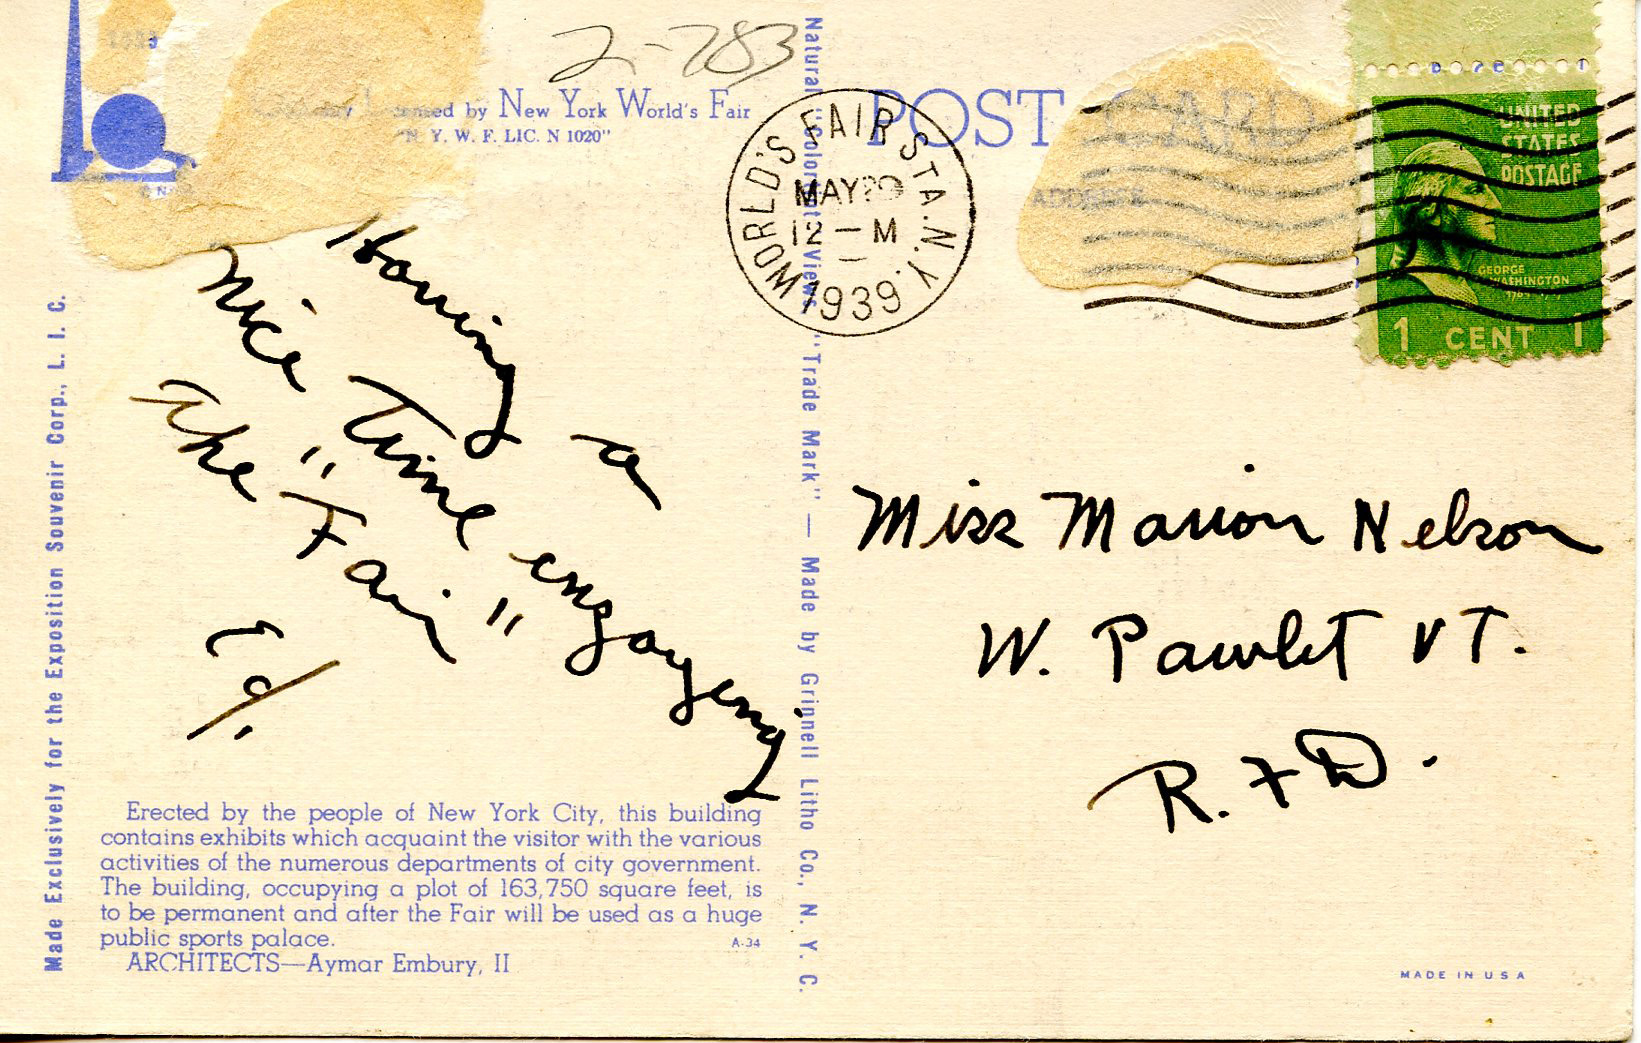 2-783
by New York World's Fair
N. Y. W. F. LIC. N 1020"
POST CARD
ADDRESS
WORLD'S FAIR STA. N.Y.
MAY
12 — M
1939
UNITED
STATES
POSTAGE
GEORGE
WASHINGTON
1 CENT 1
Having a
nice time
the "Fair"
Ed/.
Miss Marion Nelson
W. Pawlet VT.
R.F.D.
Made Exclusively for the Exposition Souvenir Corp., L. I. C.
"Trade Mark" — Made by Grinnell Litho Co., N. Y. C.
Erected by the people of New York City, this building
contains exhibits which acquaint the visitor with the various
activities of the numerous departments of city government.
The building, occupying a plot of 163,750 square feet, is
to be permanent and after the Fair will be used as a huge
public sports palace.
A-34
ARCHITECTS—Aymar Embury, II
MADE IN U S A